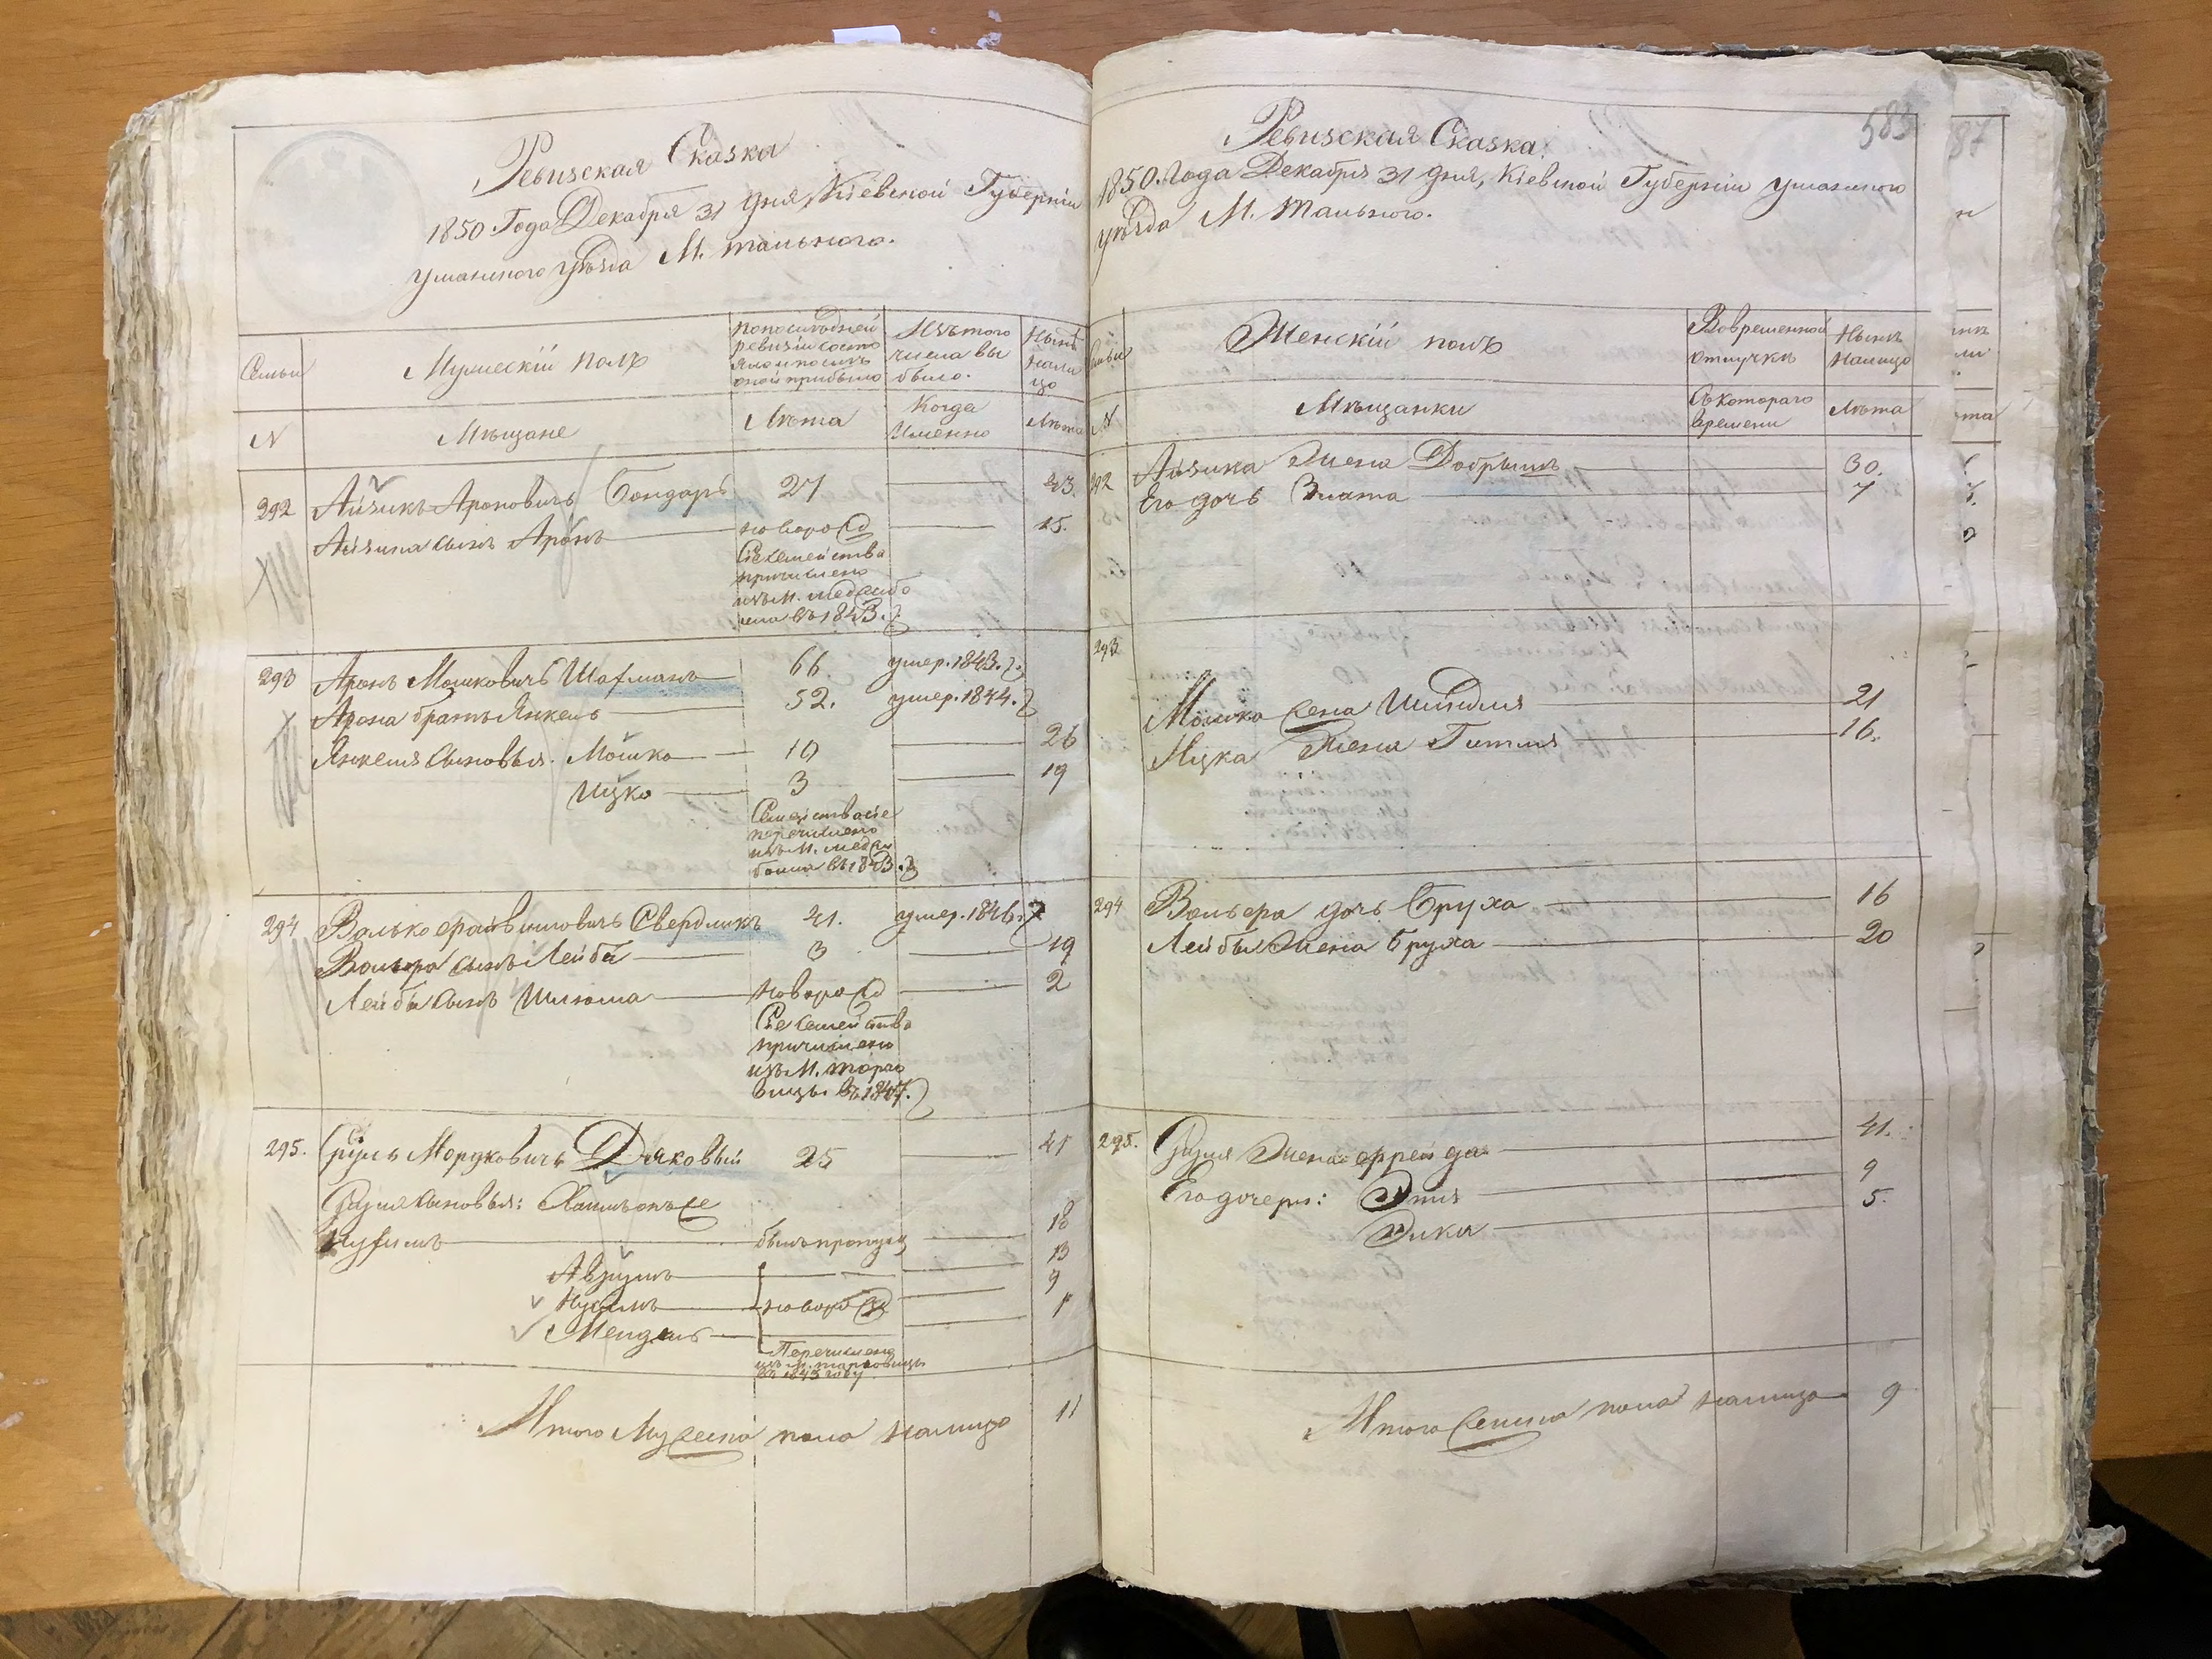 Ревизская Сказка
1850 Года Декабря 31 дня, Кіевской Губерніи
уманского уѣзда М. Тального.
Семьи
Мужескій полъ
По последней
ревизіи состо
яло и послѣ
оной прибыло
Изъ того
числа вы
было.
Нынѣ
нали
цо
N
Мѣщане
Лѣта
Когда
Именно
Лѣта
292 Айзикъ Ароновичъ Бондарь 27 43.
Айзика сынъ Аронъ новорожд 15.
Сіе семейство
причислено
изъ М.
въ 1843.
293 Аронъ Мошковичъ Шафманъ 66 умер. 1843.
Арона братъ Янкель 52. умер. 1844.
Янкеля сыновья. Мошко 10 26
Ицко 3 19
Семейство сіе
перечислено
изъ М.
въ 1843.
294 Волько Свердликъ 41. умер. 1846.
Вольера сынъ Лейба 3 19
Лейбы сынъ Шлюма новорожд 2
Сіе семейство
причислено
изъ М. Торго
вицы въ 1847.
295. Сруль Мордковичъ Дяковый 25 41
Сруля сыновья:
былъ пропущ 18
Аврумъ 13
новорожд 9
Мендель 1
Перечислено
изъ М. Торговицы
въ 1843 году
Итого Мужеска пола налицо 11
583
Ревизская Сказка.
1850. Года Декабря 31 дня, Кіевской Губерніи уманского
уѣзда М. Тального.
Семьи
Женскій полъ
Во временной
отлучкѣ
Нынѣ
налицо
N
Мѣщанки
Съ котораго
времени
Лѣта
292 Айзика жена Добрышъ 30.
Его дочь Злата 7
293
Мошка жена Шиндля 21
Ицка жена Гитля 16.
294 Вольера дочь Бруха 16
Лейбы жена Бруха 20
295. Сруля жена Фрейда 41.
Его дочери: Этя 9
5.
Итого женска пола налицо 9
87